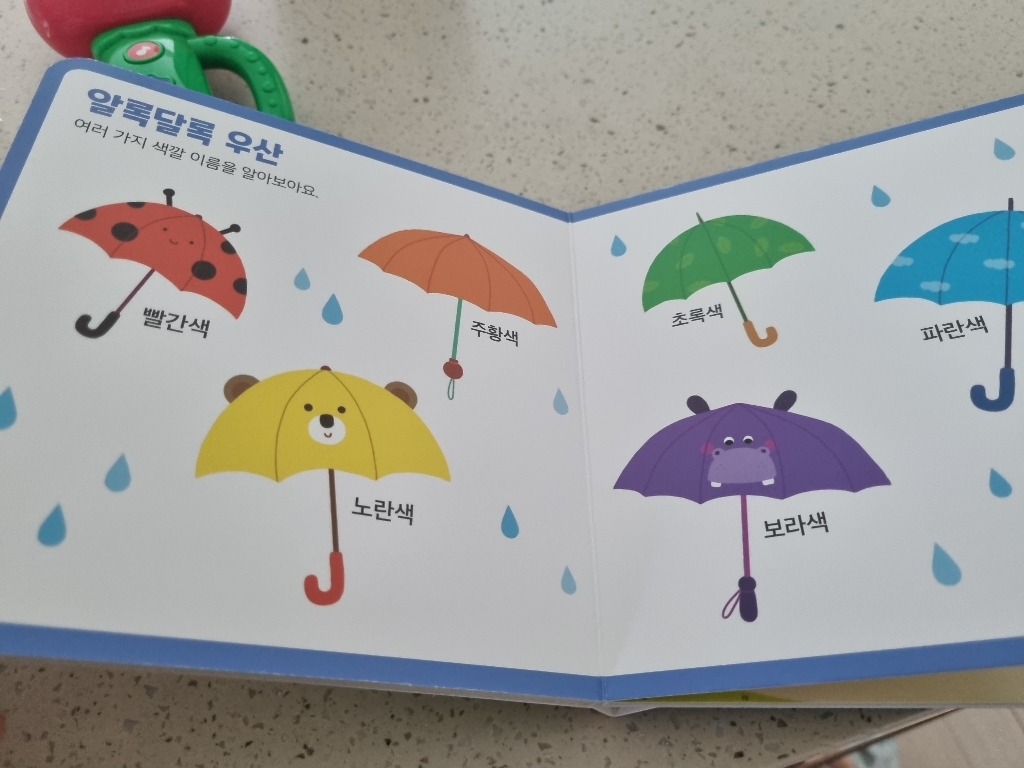 알록달록 우산
여러 가지 색깔 이름을 알아보아요.
빨간색
주황색
노란색
초록색
파란색
보라색